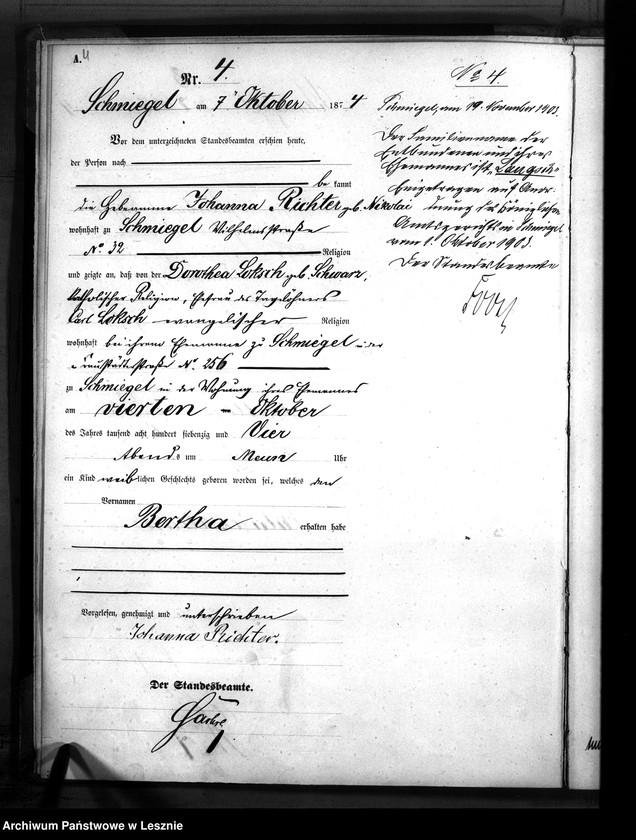 A. 4
Nr. 4.
Schmiegel am 7. Oktober 1874
Vor dem unterzeichneten Standesbeamten erschien heute,
der Person nach
be kannt
die Hebeamme Johanna Richter geb. Nikolai
wohnhaft zu Schmiegel Wilhelmstraße
No. 32 Religion
und zeigte an, daß von der Dorothea Loksch geb. Schwarz,
katholischer Religion, Ehefrau des Tagelöhners
Carl Loksch evangelischer Religion
wohnhaft bei ihrem Ehemanne zu Schmiegel in der
Fraustädterstraße No. 256
zu Schmiegel in der Wohnung ihres Ehemannes
am vierten Oktober
des Jahres tausend acht hundert siebenzig und Vier
Abends um Neun Uhr
ein Kind weiblichen Geschlechts geboren worden sei, welches den
Vornamen
Bertha erhalten habe
Vorgelesen, genehmigt und unterschrieben
Johanna Richter.
Der Standesbeamte.
No 4.
Schmiegel, am 19. November 1903.
Der Familienname der
Entbundenen und ihres
Ehemannes ist
Eingetragen auf Anor-
dnung des Königlichen
Amtsgerichts in Schmiegel
vom 1. Oktober 1903.
Der Standesbeamte
Archiwum Państwowe w Lesznie